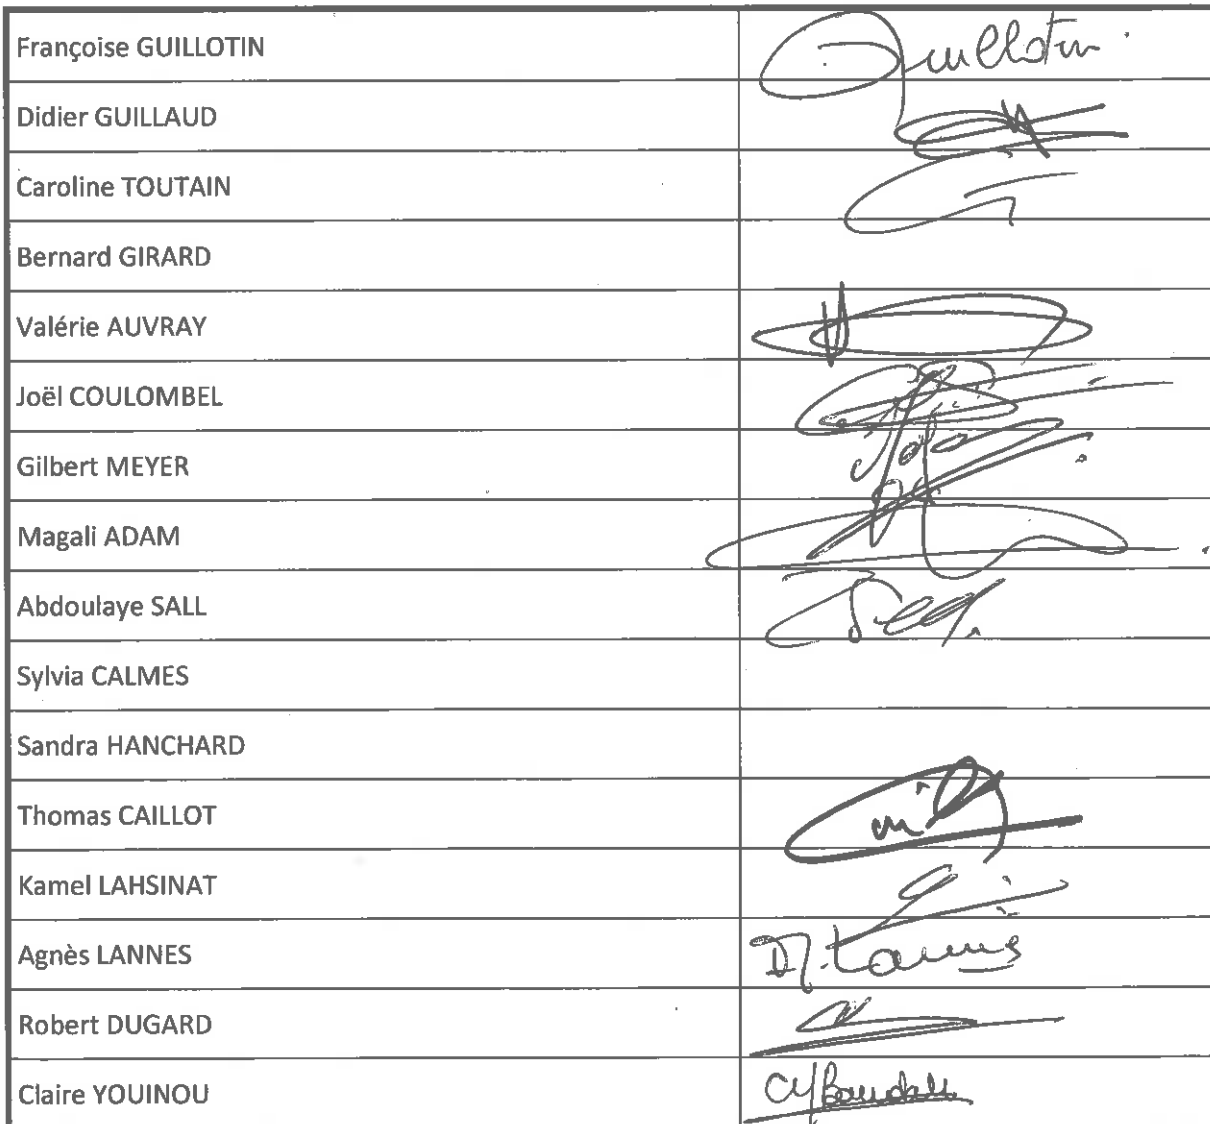 Françoise GUILLOTIN
Guillotin
Didier GUILLAUD
Caroline TOUTAIN
Bernard GIRARD
Valérie AUVRAY
Joël COULOMBEL
Gilbert MEYER
Magali ADAM
Abdoulaye SALL
Sylvia CALMES
Sandra HANCHARD
Thomas CAILLOT
Kamel LAHSINAT
Agnès LANNES
Robert DUGARD
Claire YOUINOU